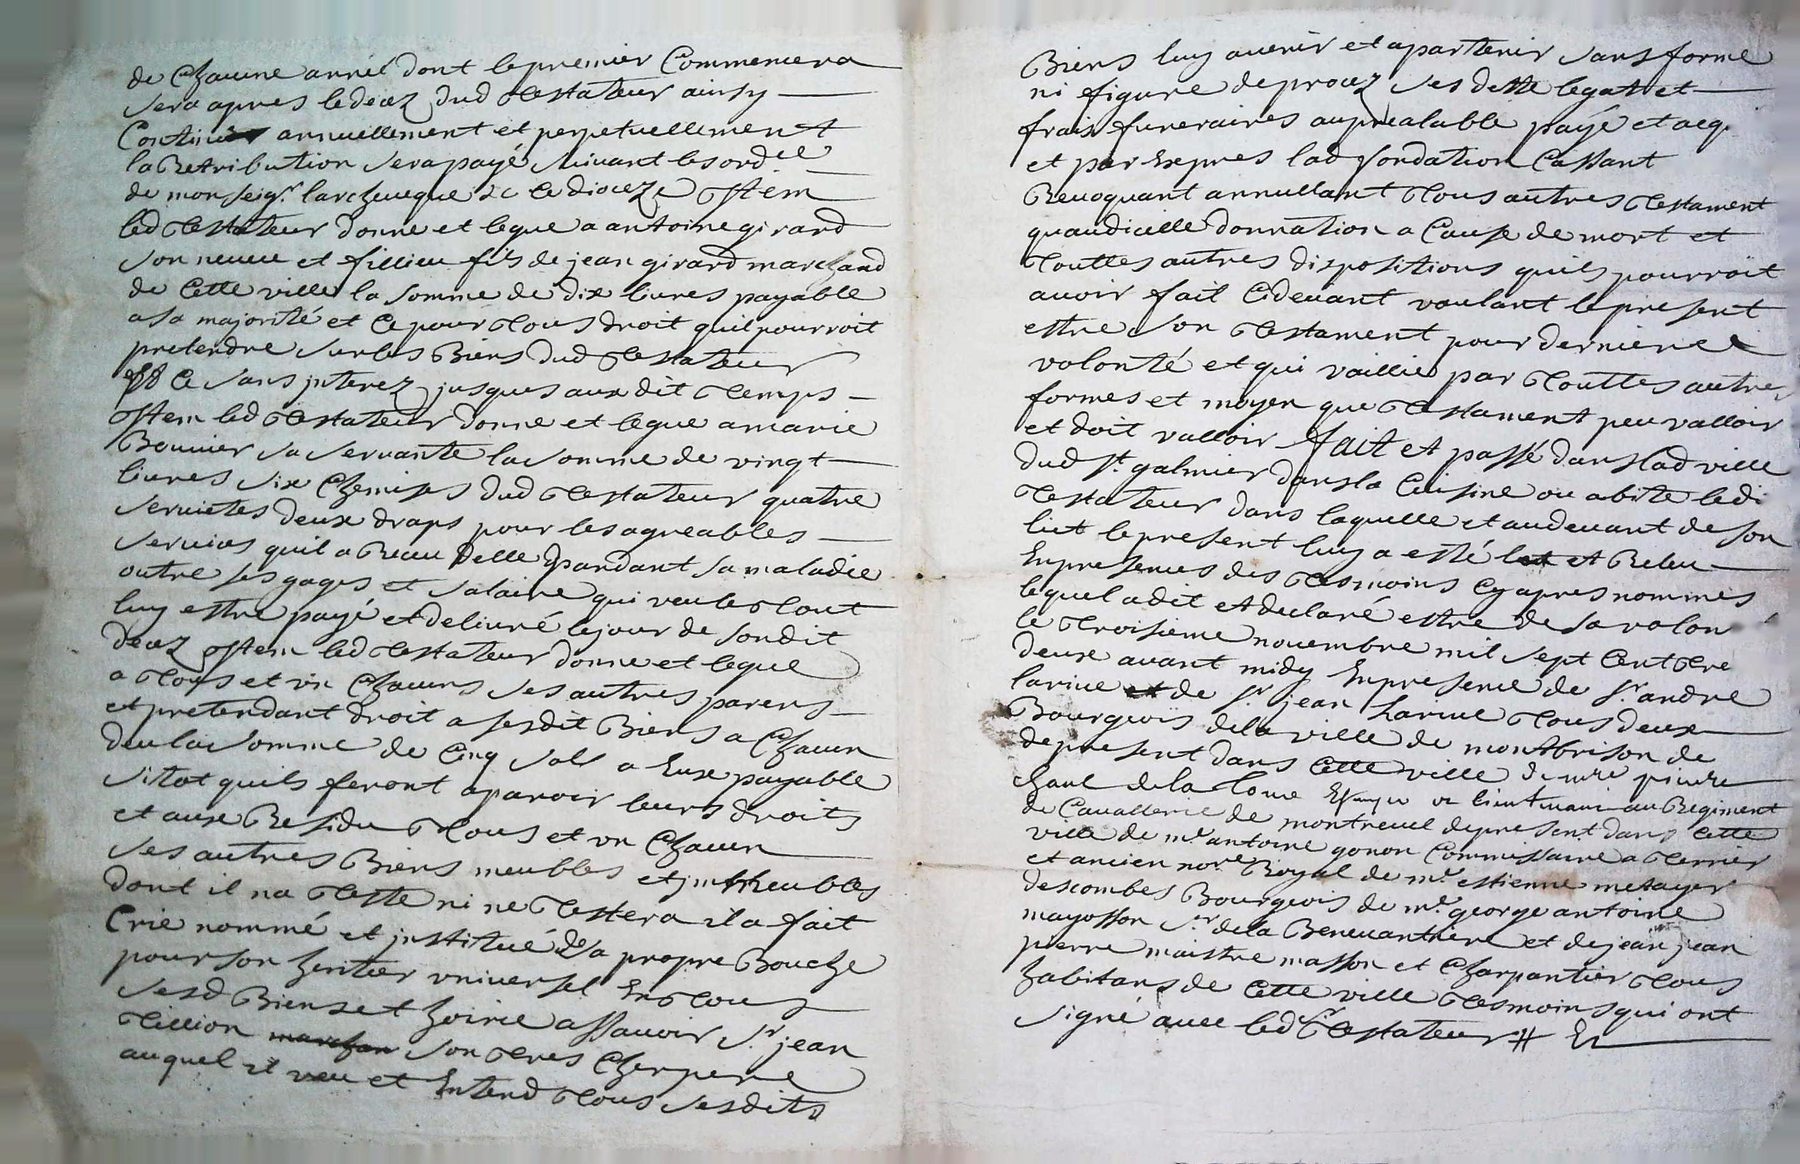 de Chacune année dont le premier Commencera
sera apres le decez dud testateur ainsy
Continué annuellement et perpetuellement
la Retribution sera payé suivant les ord.ce
de monseig.r l'archeveque de ce dioceze Ittem
led testateur donne et legue a antoine girard
son neveu et fillieu fils de jean girard marchand
de cette ville la somme de dix livres payable
a sa majorité et ce pour tous droit quil pourroit
pretendre sur les Biens dud testateur
et ce sans jnterez jusques aux dit temps
Ittem led testateur donne et legue a marie
Bouvier sa servante la somme de vingt
livres six Chemises dud testateur quatre
serviettes deux draps pour les agreables
services quil a Receu delle pandant sa maladie
outre ses gages et salaire qui veut le tout
luy estre payé et delivré le jour de sondit
decez Ittem led testateur donne et legue
a tous et vn Chacuns ses autres parens
et pretendant droit a sesdit Biens a Chacun
deu la somme de Cinq sols a Eux payable
sitot quils feront aparoir leurs droits
et aux Residu tous et vn Chacun
ses autres Biens meubles et jmmeubles
dont il na teste ni ne testera il a fait
Crie nommé et jnstitué de sa propre Bouche
pour son heritier vniversel En tous
sesd Biens et hoirie assavoir S.r jean
tillion marchan son tres Cher pere
auquel il veu et Entend tous sesdits
Biens luy avenir et apartenir sans forme
ni figure de procez ses dette legats et
frais funeraires au prealable payé et acq.
et par Expres lad fondation Cassant
Revoquant annullant tous autres testament
quaudicille donnation a Cause de mort et
touttes autres dispositions quils pourroit
avoir fait Cidevant voulant le present
estre son testament pour derniere
volonté et qui vaillie par touttes autres
formes et moyen que testament peu valloir
et doit valloir fait et passé dans lad ville
dud S.t galmier dans la Cuisine ou abite ledi
testateur dans laquelle et au devant de son
lict le present luy a esté let et Releu
En presences des tesmoins Cy apres nommés
lequel a dit et declaré estre de sa volon
le troisieme novembre mil sept Cent tre
deux avant midy En presence de S.r andre
larive et de S.r jean Larive tous deux
Bourgeois de la ville de montbrison de
de present dans Cette ville de m.re pierre
de la Come Escuyer lieutenant au Regiment
de Cavallerie de montreuel de present dans Cette
ville de m.e antoine gonon Commissaire a terrier
et ancien no.re Royal de m.e estienne metayer
descombes Bourgeois de m.e george antoine
mayosson S.r de la Benevantiere et de jean jean
pierre maistre masson et Charpantier tous
habitans de Cette ville tesmoins qui ont
signé avec led testateur # Et